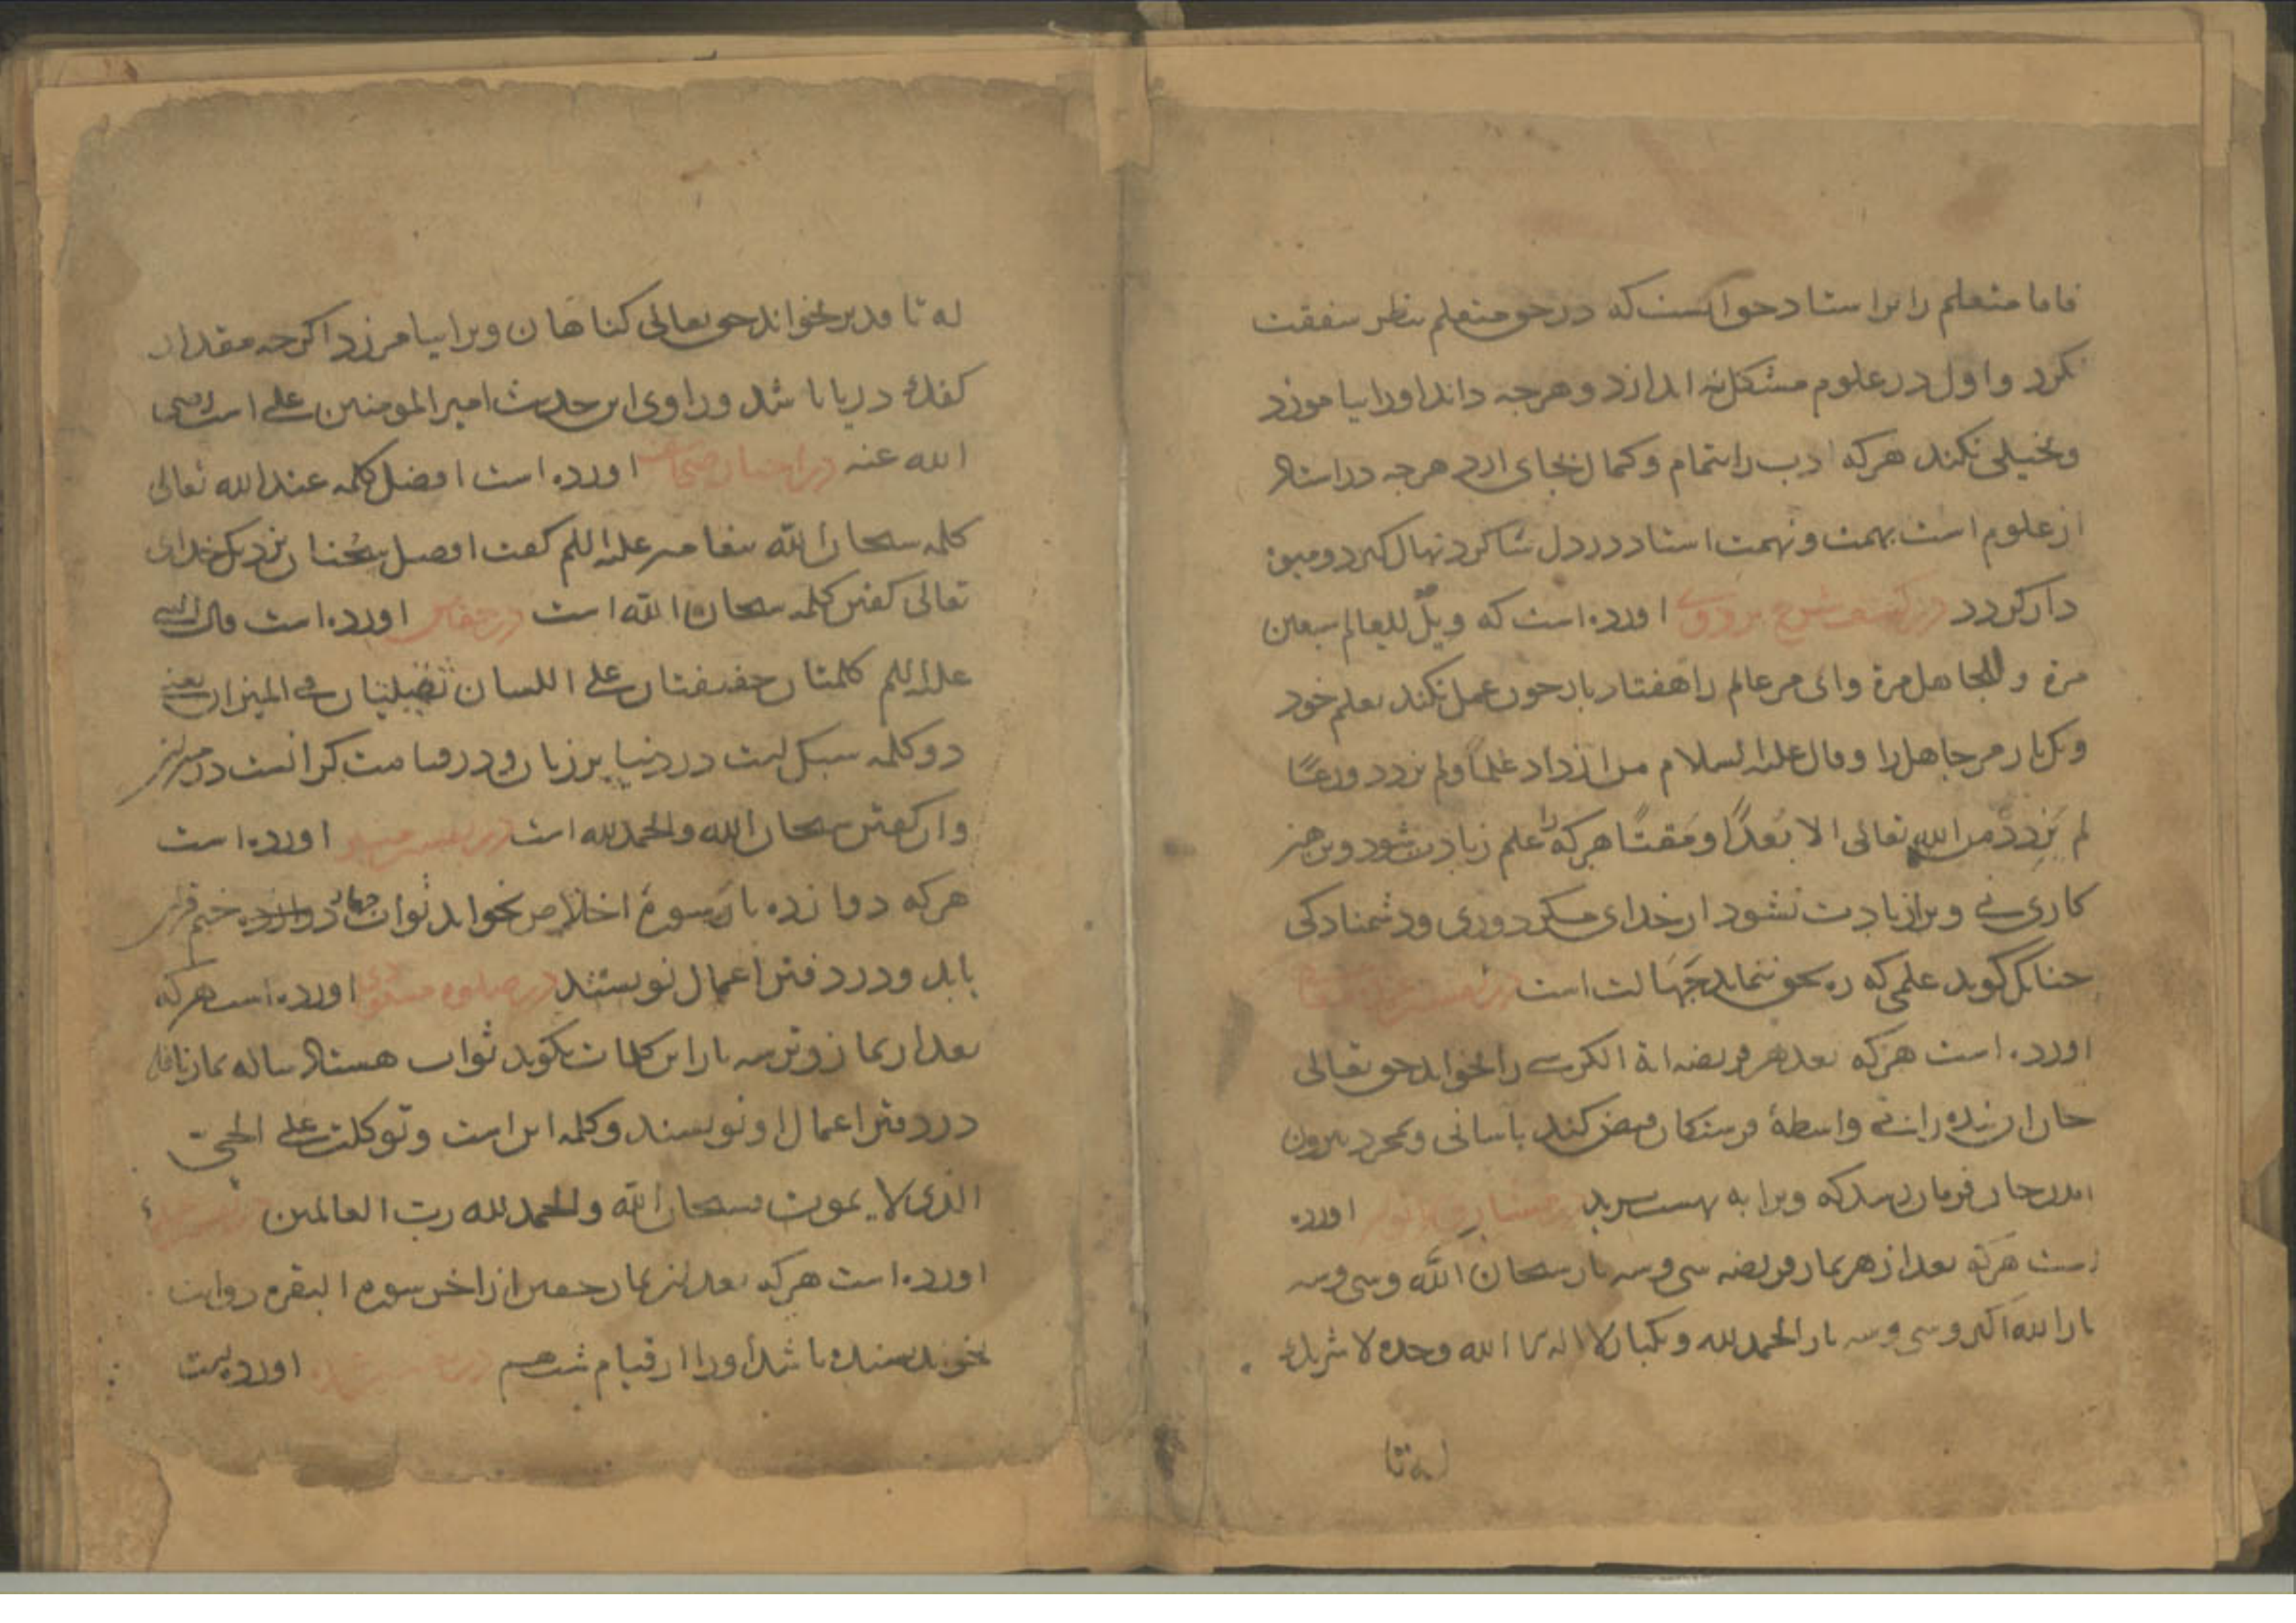 فاما متعلم را بر استاد حق آنست که در حق متعلم بنظر شفقت
نکرد و اول در علوم مشکل نه اندازد و هرجه داند اورا بیاموزد
و بخیلی نکند هرکه ادب را بتمام و کمال بجای ارد هرجه در استاد
از علوم است بهمت و نهمت استاد در دل شاکرد نهال کیرد و میوه
دار کردد در کشف شرح بزدوی اورده است که ویل للعالم سبعین
مرة و للجاهل مرة وای مر عالم را هفتاد بار جون عمل نکند بعلم خود
و یک بار مر جاهل را و قال علیه السلام من ازداد علما ولم یزدد ورعا
لم یزدد من الله تعالی الا بعدا و مقتا هرکه را علم زیادت شود و برهیز
کاری وی را زیادت نشود از خدای مکر دوری و دشمنادکی
جنانک کوید علمی که ره بحق ننماید جهالت است در تفسیر
اورده است هرکه بعد هر فریضه ایة الکرسی را بخواند حق تعالی
جان ان بنده را بی واسطهٔ فرستکان قبض کند باسانی و بمجرد بیرون
امدن جان فرمان رسد که ویرا به بهشت برید در مشارق الانوار اورده
است هرکه بعد از هر نماز فریضه سی و سه بار سبحان الله و سی و سه
بار الله اکبر و سی و سه بار الحمد لله و یکبار لا اله الا الله وحده لا شریک
له تا
له تا قدیر بخواند حق تعالی کناهان ویرا بیامرزد اکرجه مقدار
کفک دریا باشد و راوی این حدیث امیر المومنین علی است رضی
الله عنه در اورده است افضل کلمه عند الله تعالی
کلمه سبحان الله بیغامبر علیه اللم کفت افضل سخنان نزدیک خدای
تعالی کفتن کلمه سبحان الله است در حقایق اورده است قال النبی
علیه اللم کلمتان خفیفتان علی اللسان ثقیلتان فی المیزان یعنی
دو کلمه سبک است در دنیا بر زبان و در قیامت کرانست در میزان
وان کفتن سبحان الله والحمد لله است در تفسیر اورده است
هرکه دوازده بار سورة اخلاص بخواند ثواب دوازده ختم قران
یابد و در دفتر اعمال نویسند در صلوة مسعودی اورده است هرکه
بعد از نماز وتر سه بار این کلمات بکوید ثواب هستاد ساله نماز نافله
در دفتر اعمال او نویسند و کلمه این است و توکلت علی الحی
الذی لا یموت سبحان الله والحمد لله رب العالمین در
اورده است هرکه بعد از نماز خفتن از اخر سورة البقره دو ایت
بخواند بسنده باشد اورا از قیام شب هم در اورده است